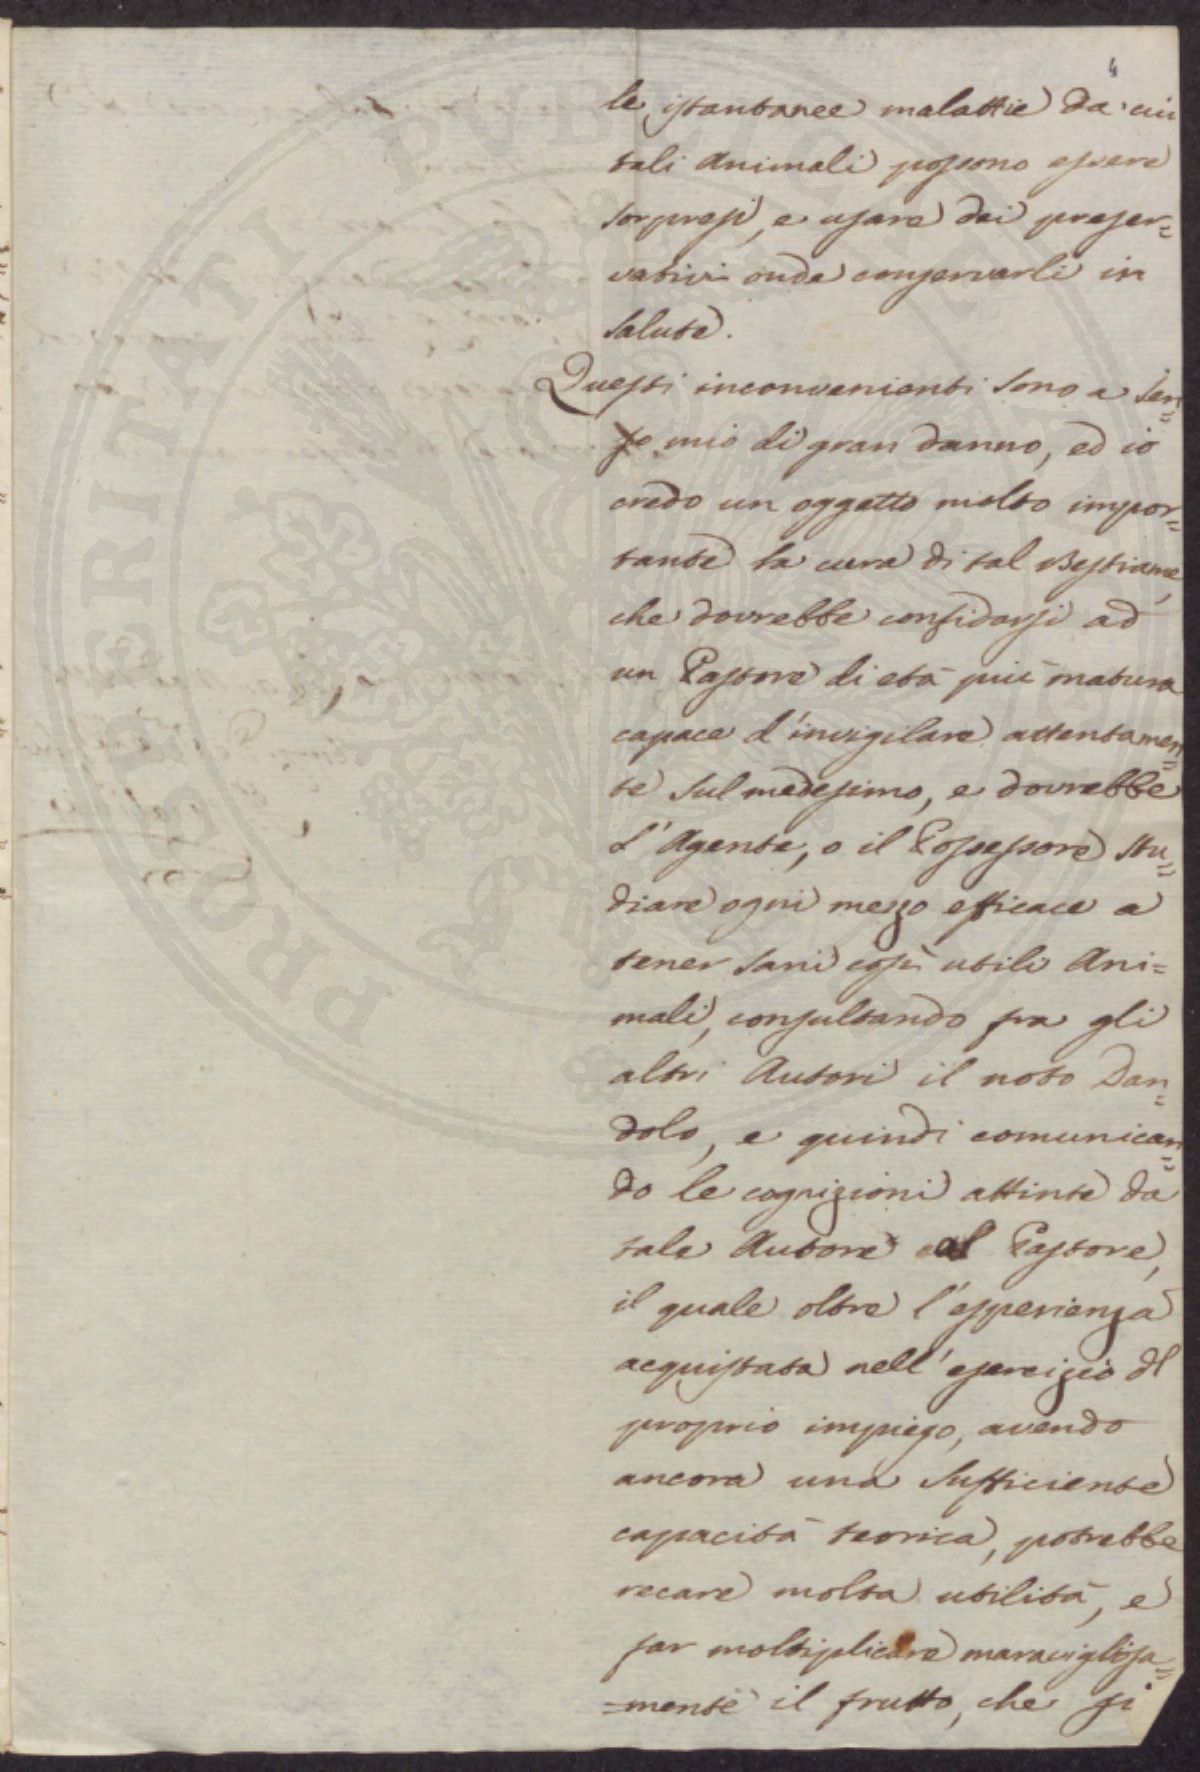 4
le istantanee malattie da cui
tali Animali possono essere
sorpresi, e usare dei preser=
vativi onde conservarli in
salute.
Questi inconvenienti sono a sen=
so mio di gran danno, ed io
credo un oggetto molto impor=
tante la cura di tal Bestiame,
che dovrebbe confidarsi ad
un Pastore di età più matura
capace d'invigilare attentamen=
te sul medesimo, e dovrebbe
l'Agente, o il Possessore stu=
diare ogni mezzo efficace a
tener sani così utili Ani=
mali, consultando fra gli
altri Autori il noto Dan=
dolo, e quindi comunican=
do le cognizioni attinte da
tale Autore al Pastore,
il quale oltre l'esperienza
acquistata nell'esercizio del
proprio impiego, avendo
ancora una sufficiente
capacità teorica, potrebbe
recare molta utilità, e
far moltiplicare maravigliosa=
=mente il frutto, che si
PROSPERITATI PVBLICAE